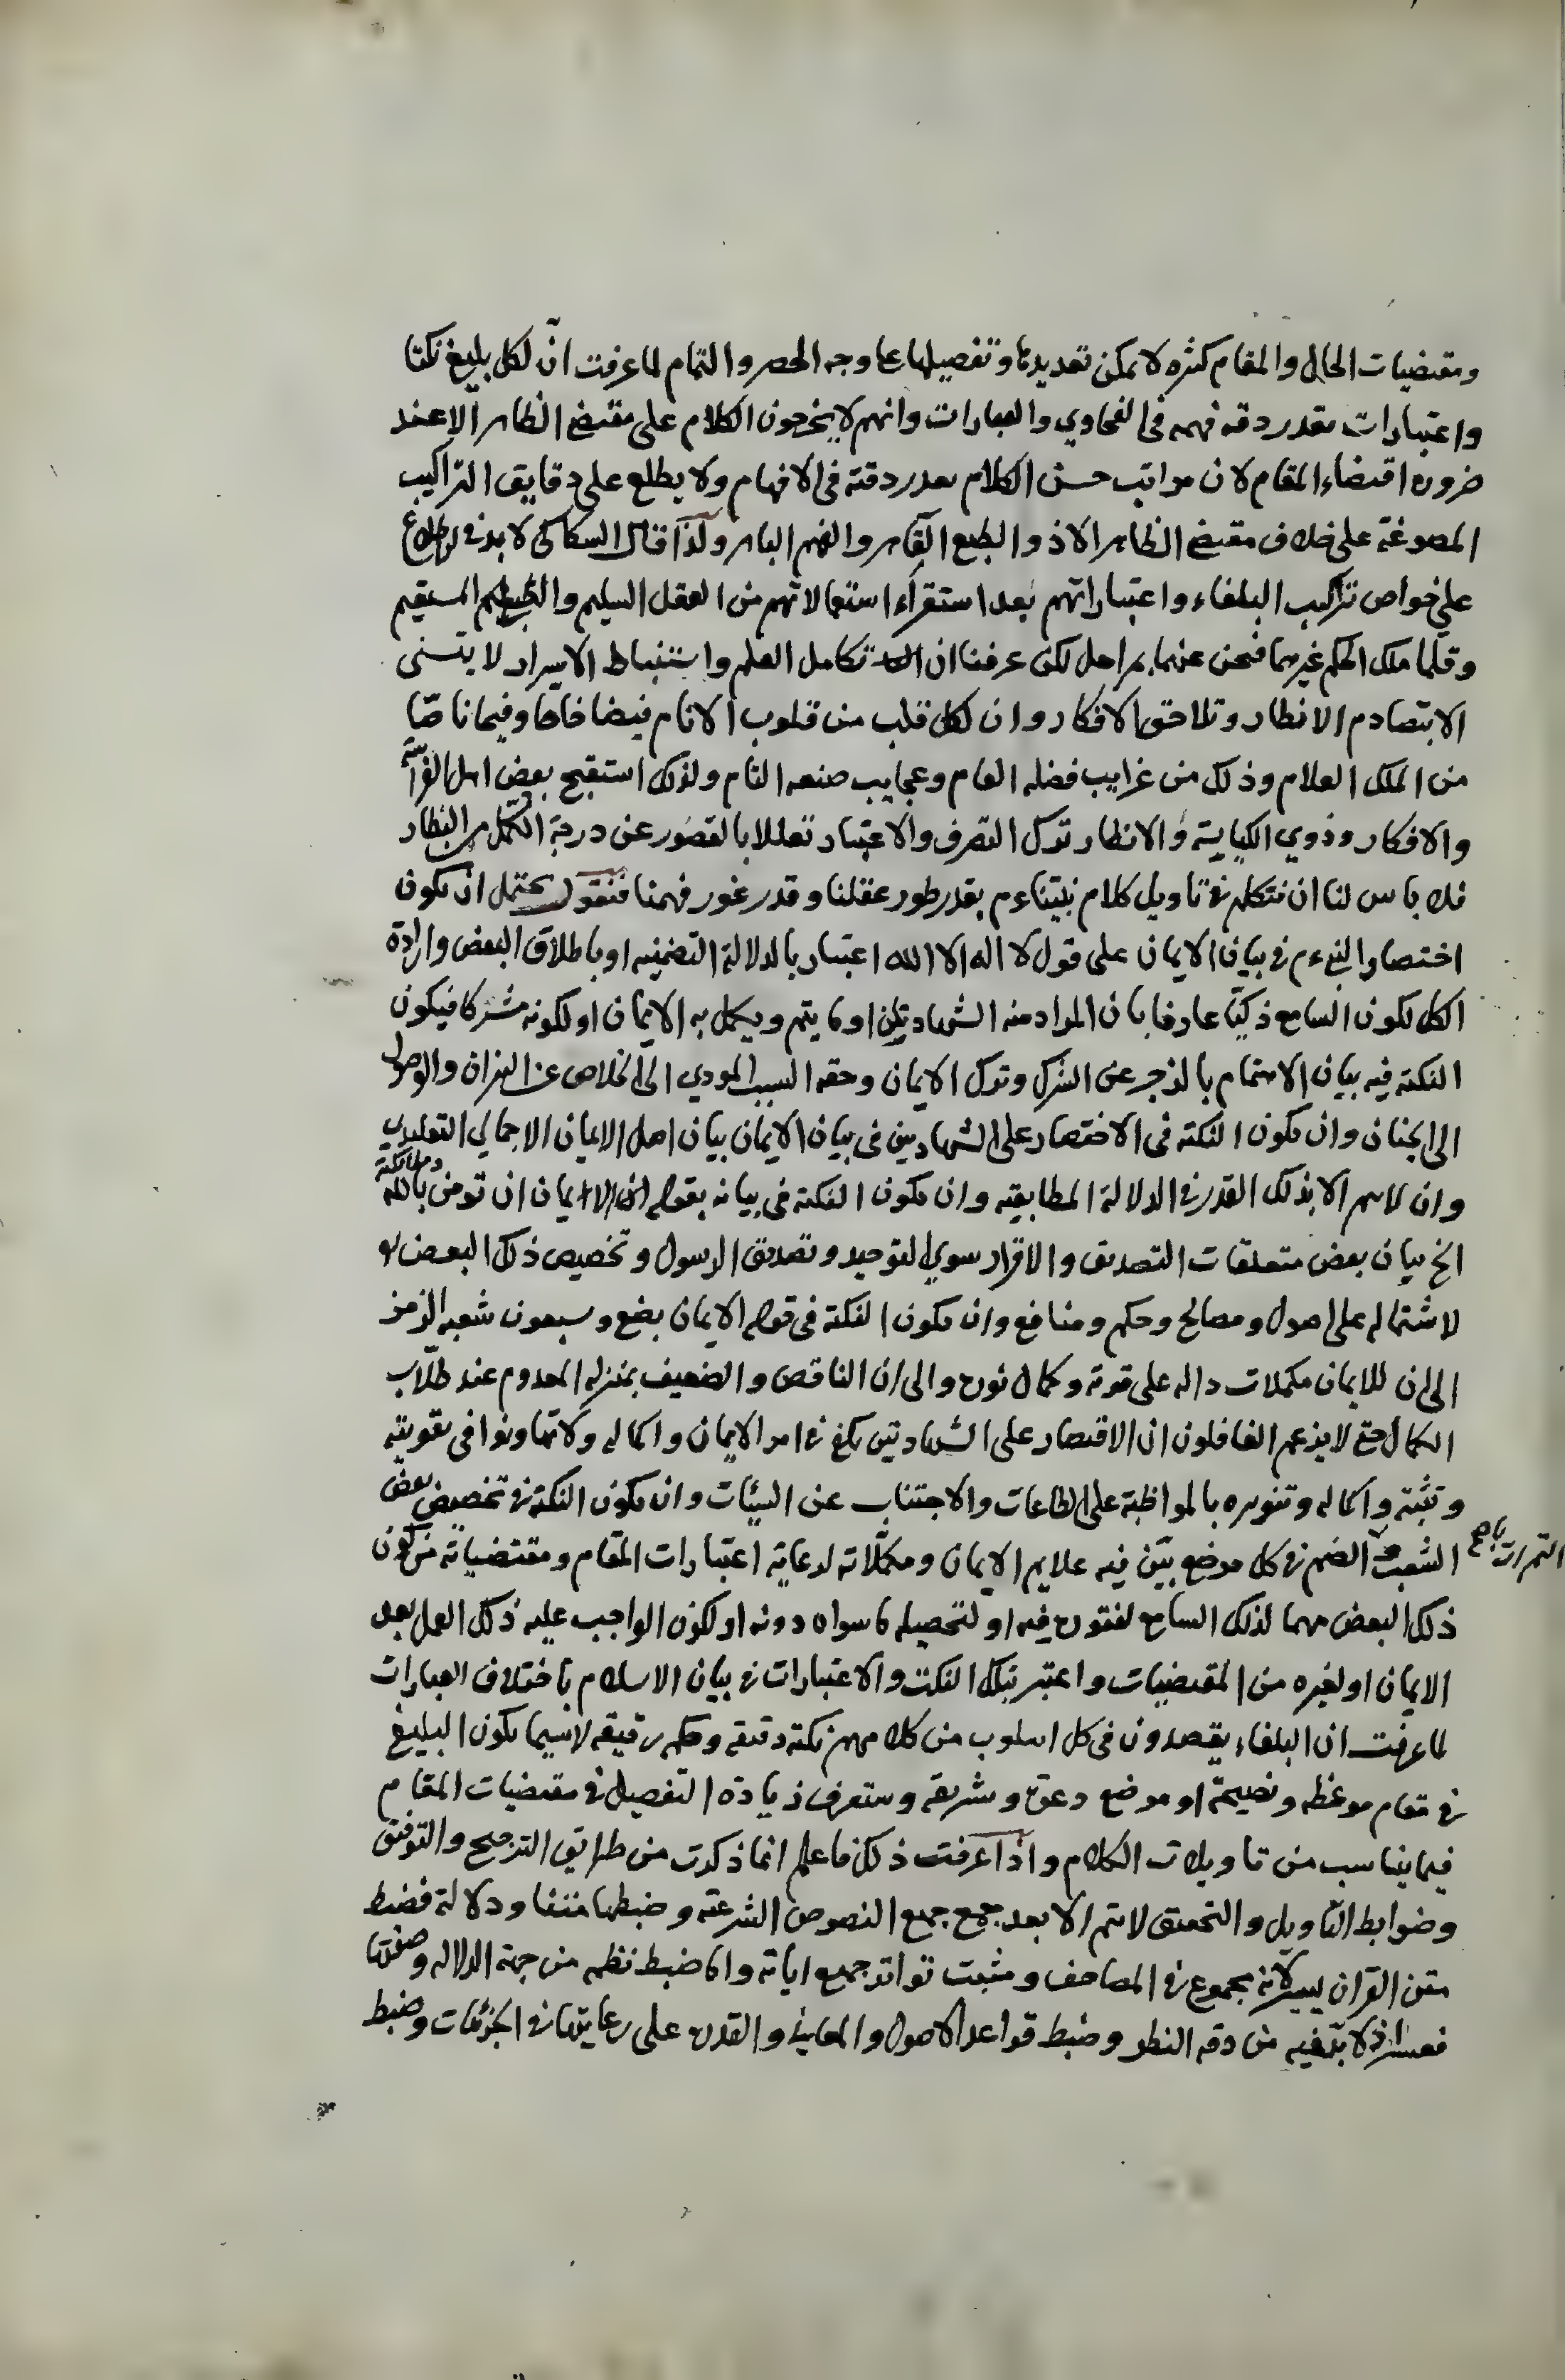 ومقتضيات الحال والمقام كثيره لا يمكن تعديدها وتفصيلها على وجه الحصر والتمام لما عرفت انّ لكل بليغ نكتا
واعتبارات بقدر دقة فهمه في الفحاوي والعبارات وانهم لا يخرجون الكلام على مقتضى الظاهر الا عند
ضرورة اقتضاء المقام لان مراتب حسن الكلام بقدر دقته في الافهام ولا يطلع على دقايق التراكيب
المصوغة على خلاف مقتضى الظاهر الا ذو الطبع القاهر والفهم الباهر ولذا قال السكاكي لا بد في الاطلاع
على خواص تراكيب البلغاء واعتباراتهم بعد استقراء استعمالاتهم من العقل السليم والطبع المستقيم
وقلما ملك الحكم غيرهما فنحن عنهما بمراحل لكن عرفنا ان تكامل العلم واستنباط الاسرار لا يتسنى
الا بتصادم الانظار وتلاحق الافكار وان لكل قلب من قلوب الانام فيضا خاصا وفيما ناصّا
من الملك العلام وذلك من غرايب فضله العام وعجايب صنعه التام ولذلك استقبح بعض اهل الفراسة
والافكار وذوي الكياسة والانظار ترك التصرف والاعتبار تعللا بالقصور عن درجة الكمّل من النظار
فلا باس لنا ان نتكلم في تاويل كلام نبيّنا ءم بقدر طور عقلنا وقدر غور فهمنا فنقول يحتمل ان يكون
اختصار النبي ءم في بيان الايمان على قول لا اله الا الله اعتبار بالدلالة التضمنيه او باطلاق البعض وارادة
الكل لكون السامع ذكيّا عارفا بان المراد منه الشهادتين او ما يتم ويكمل به الايمان او لكونه مشركا فيكون
النكتة فيه بيان الاهتمام بالزجر عن الشرك وترك الايمان وحقه السبب المودي الى الخلاص عن النيران والوصول
الى الجنان وان يكون النكتة في الاختصار على الشهادتين في بيان الايمان بيان اصل الايمان الاجمالي التقليدي
وان لا يتم الا بذلك القدر في الدلالة المطابقيه وان يكون النكتة في بيانه بقوله ان الايمان ان تومن بالله وملائكته
الخ بيان بعض متعلقات التصديق والاقرار سوى التوحيد وتصديق الرسول وتخصيص ذلك البعض به
لاشتماله على اصول ومصالح وحكم ومنافع وان يكون النكتة في قوله الايمان بضع وسبعون شعبه الرمز
الى ان للايمان مكملات داله على قوته وكمال نوره والى ان الناقص والضعيف بمنزله المعدوم عند طلّاب
الكمال حتى لا يزعم الغافلون ان الاقتصار على الشهادتين يكفي في امر الايمان واكماله ولا تهاونوا في تقويته
وتثبته واكماله وتنويره بالمواظبة على الطاعات والاجتناب عن السيئات وان يكون النكتة في تخصيص بعض
الشعب والثمرات بالضم في كل موضع بيّن فيه علايم الايمان ومكمّلاته لرعاية اعتبارات المقام ومقتضياته من كون
ذلك البعض مهما لذلك السامع لفتوره فيه او لتحصيله ما سواه دونه او لكون الواجب عليه ذلك العمل بعد
الايمان او لغيره من المقتضيات واعتبر تلك النكت والاعتبارات في بيان الاسلام باختلاف العبارات
لما عرفت ان البلغاء يقصدون في كل اسلوب من كلامهم نكته دقيقه وحكم رقيقه لا سيما يكون البليغ
في مقام موعظه ونصيحة او موضع دعوة وشريعه وستعرف زيادة التفصيل في مقتضيات المقام
فيما يناسب من تاويلات الكلام واذا عرفت ذلك فاعلم انما ذكرت من طرايق الترجيح والتوفيق
وضوابط التاويل والتحقيق لا يتم الا بعد جمع جميع النصوص الشرعية وضبطها متنا ودلالة فضبط
متن القران يسير لانه مجموع في المصاحف ومثبت تواتر جميع اياته واما ضبط نظمه من جهة الدلاله وصفتها
فعسر اذ لا بدّ فيه من دقه النظر وضبط قواعد الاصول والمعاني والقدرة على رعايتها في الجزئيات وضبط